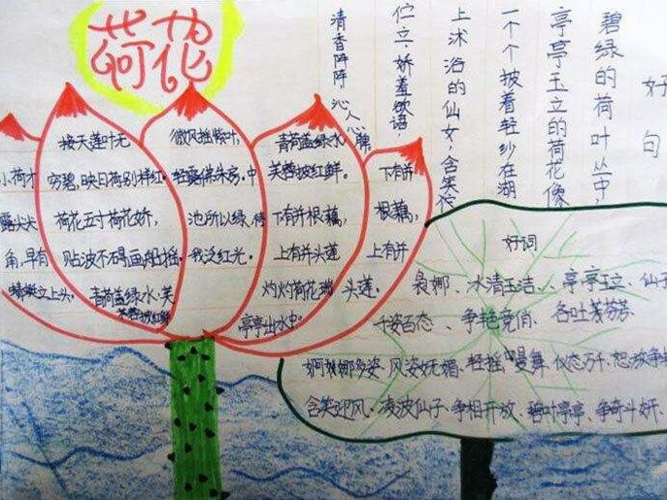 荷花
小荷才
露尖尖
角，早有
蜻蜓立上头。
接天莲叶无
穷碧，映日荷别样红。
荷花五寸荷花娇，
贴波不碍画船摇。
青荷盖绿水，芙
蓉披红鲜
微风摇紫叶，
轻露拂朱房，中
池所以绿，待
我泛红光。
青荷盖绿水，
芙蓉披红鲜。
下有并根藕，
上有并头莲
灼灼荷花瑞，
亭亭出水中。
下有并
根藕，
上有并
头莲。
好句
碧绿的荷叶丛中，
亭亭玉立的荷花像
一个个披着轻纱在湖
上沐浴的仙女，含笑伫
伫立，娇羞欲语
清香阵阵 沁人心脾
好词
袅娜、冰清玉洁、亭亭玉立、仙
千姿百态、争艳竞俏、各吐芬芳
婀娜多姿、风姿妩媚、轻摇曼舞、仪态万千、怒放争
含笑迎风、凌波仙子、争相开放、碧叶亭亭、争奇斗妍